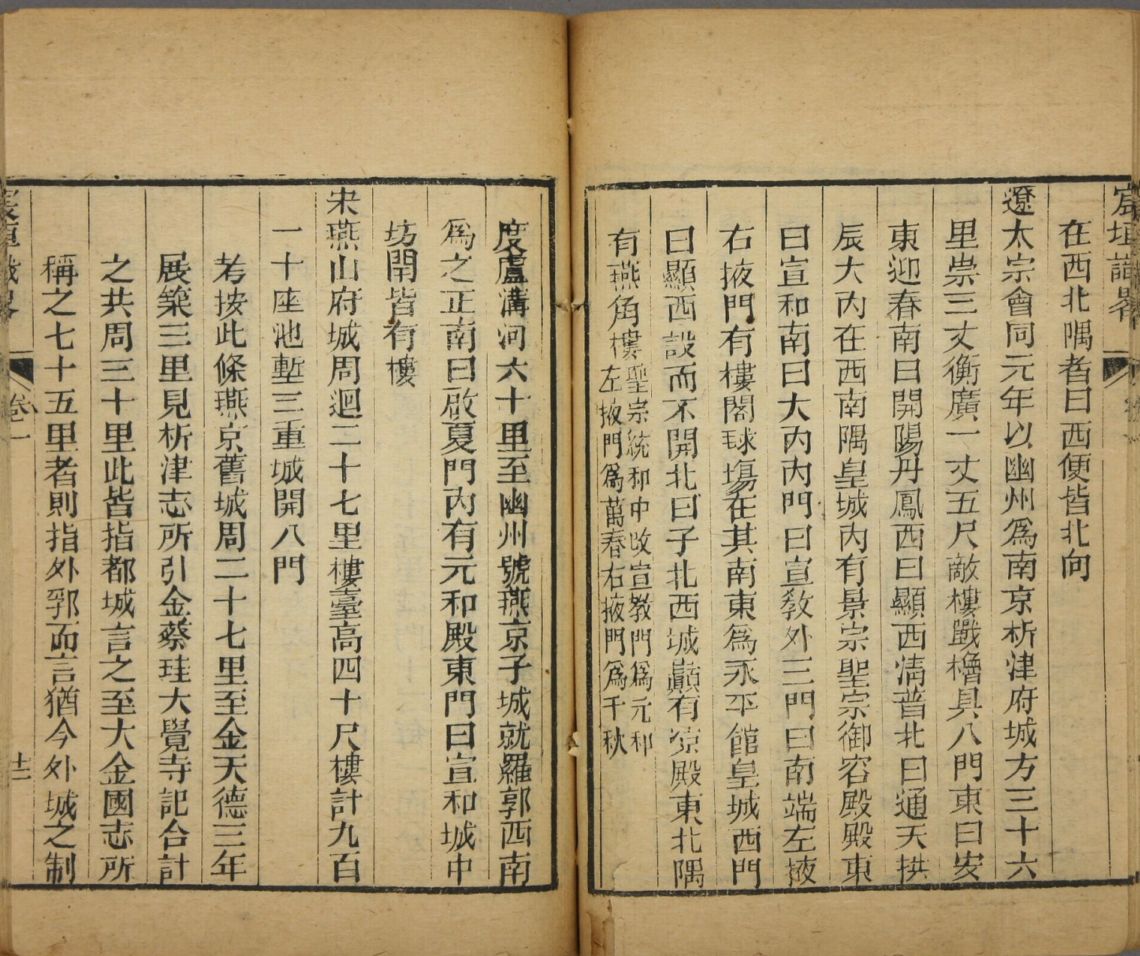 宸垣識畧
在西北隅者曰西便皆北向
遼太宗會同元年以幽州爲南京析津府城方三十六
里崇三丈衡廣一丈五尺敵樓戰櫓具八門東曰安
東迎春南曰開陽丹鳳西曰顯西淸晉北曰通天拱
辰大內在西南隅皇城內有景宗聖宗御容殿殿東
曰宣和南曰大內內門曰宣敎外三門曰南端左掖
右掖門有樓閣球塲在其南東爲永平館皇城西門
曰顯西設而不開北曰子北西城巔有涼殿東北隅
有燕角樓聖宗統和中改宣敎門爲元和
左掖門爲萬春右掖門爲千秋
度盧溝河六十里至幽州號燕京子城就羅郭西南
爲之正南曰啟夏門內有元和殿東門曰宣和城中
坊閈皆有樓
宋燕山府城周迴二十七里樓臺高四十尺樓計九百
一十座池塹三重城開八門
考按此條燕京舊城周二十七里至金天德三年
展築三里見析津志所引金蔡珪大覺寺記合計
之共周三十里此皆指都城言之至大金國志所
稱之七十五里者則指外郛而言猶今外城之制
宸垣識畧
卷一
十二